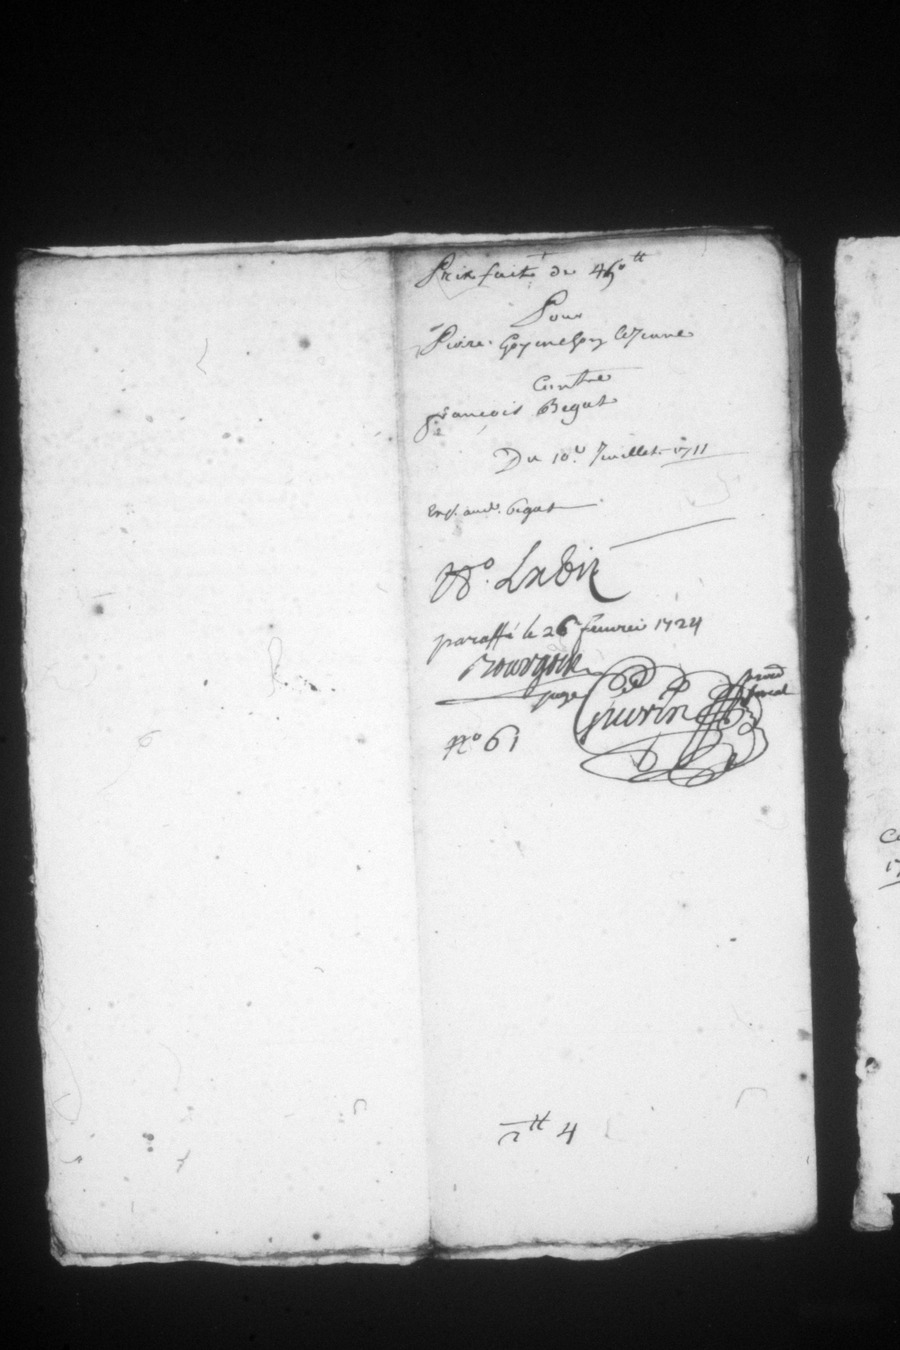 Prix fait de 460 tt
Pour
Pierre Goyeneche le Jeune
Contre
françois Begat
Du 10e Juillet 1711
begat
No. Ladir
paraffé le 26 feuvrei 1724
Bourgoin
juge Guérin
No 61
tt 4